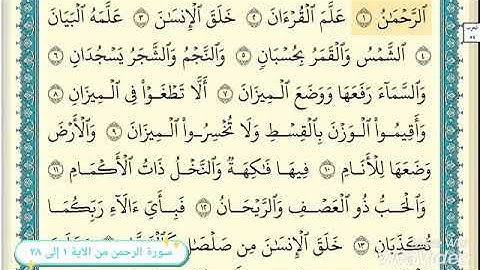 الرَّحْمَـٰنُ ١ عَلَّمَ الْقُرْءَانَ ٢ خَلَقَ الْإِنسَـٰنَ ٣ عَلَّمَهُ الْبَيَانَ
٤ الشَّمْسُ وَالْقَمَرُ بِحُسْبَانٍ ٥ وَالنَّجْمُ وَالشَّجَرُ يَسْجُدَانِ ٦
وَالسَّمَآءَ رَفَعَهَا وَوَضَعَ الْمِيزَانَ ٧ أَلَّا تَطْغَوْا۟ فِى الْمِيزَانِ ٨
وَأَقِيمُوا۟ الْوَزْنَ بِالْقِسْطِ وَلَا تُخْسِرُوا۟ الْمِيزَانَ ٩ وَالْأَرْضَ
وَضَعَهَا لِلْأَنَامِ ١٠ فِيهَا فَـٰكِهَةٌ وَالنَّخْلُ ذَاتُ الْأَكْمَامِ ١١
وَالْحَبُّ ذُو الْعَصْفِ وَالرَّيْحَانُ ١٢ فَبِأَىِّ ءَالَآءِ رَبِّكُمَا
تُكَذِّبَانِ ١٣ خَلَقَ الْإِنسَـٰنَ مِن صَلْصَـٰلٍ
سورة الرحمن من الآية ١ إلى ٢٨